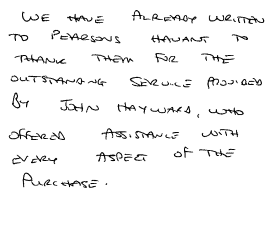 WE HAVE ALREADY WRITTEN
TO PEARSONS HAVANT TO
THANK THEM FOR THE
OUTSTANDING SERVICE PROVIDED
BY JOHN HAYWARD, WHO
OFFERED ASSISTANCE WITH
EVERY ASPECT OF THE
PURCHASE.